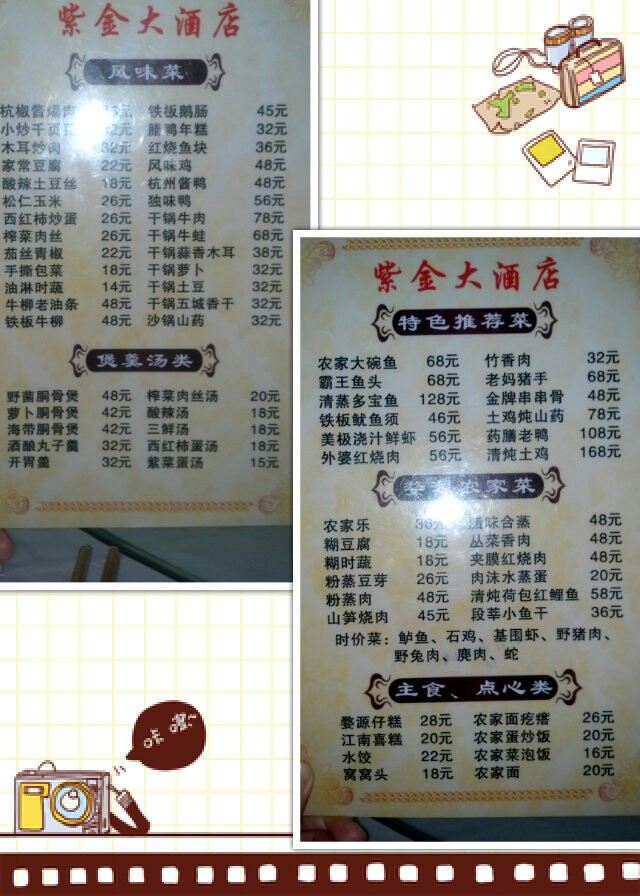 紫金大酒店
风味菜
杭椒酱爆肉 铁板鹅肠 45元
小炒千页豆 2元 腊鸭年糕 32元
木耳炒肉 32元 红烧鱼块 36元
家常豆腐 22元 风味鸡 48元
酸辣土豆丝 18元 杭州酱鸭 48元
松仁玉米 26元 独味鸭 56元
西红柿炒蛋 26元 干锅牛肉 78元
榨菜肉丝 26元 干锅牛蛙 68元
茄丝青椒 22元 干锅蒜香木耳 38元
手撕包菜 18元 干锅萝卜 32元
油淋时蔬 14元 干锅土豆 32元
牛柳老油条 48元 干锅五城香干 32元
铁板牛柳 48元 沙锅山药 32元
煲羹汤类
野菌胴骨煲 48元 榨菜肉丝汤 20元
萝卜胴骨煲 42元 酸辣汤 18元
海带胴骨煲 42元 三鲜汤 18元
酒酿丸子羹 32元 西红柿蛋汤 18元
开胃羹 32元 紫菜蛋汤 15元
紫金大酒店
特色推荐菜
农家大碗鱼 68元 竹香肉 32元
霸王鱼头 68元 老妈猪手 68元
清蒸多宝鱼 128元 金牌串串骨 48元
铁板鱿鱼须 46元 土鸡炖山药 78元
美极浇汁鲜虾 56元 药膳老鸭 108元
外婆红烧肉 56元 清炖土鸡 168元
婺源农家菜
农家乐 36元 腊味合蒸 48元
糊豆腐 18元 丛菜香肉 48元
糊时蔬 18元 夹膜红烧肉 48元
粉蒸豆芽 26元 肉沫水蒸蛋 20元
粉蒸肉 48元 清炖荷包红鲤鱼 58元
山笋烧肉 45元 段莘小鱼干 36元
时价菜：鲈鱼、石鸡、基围虾、野猪肉、
野兔肉、麂肉、蛇
主食、点心类
婺源仔糕 28元 农家面疙瘩 26元
江南喜糕 20元 农家蛋炒饭 20元
水饺 22元 农家菜泡饭 16元
窝窝头 18元 农家面 20元
咔嚓~